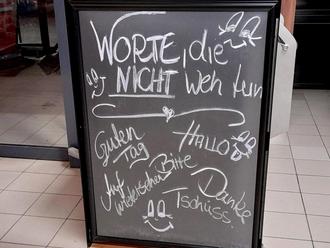 WORTE, die
NICHT weh tun
Guten Tag
HALLO
Bitte
Auf wiedersehen
Danke
Tschüss.